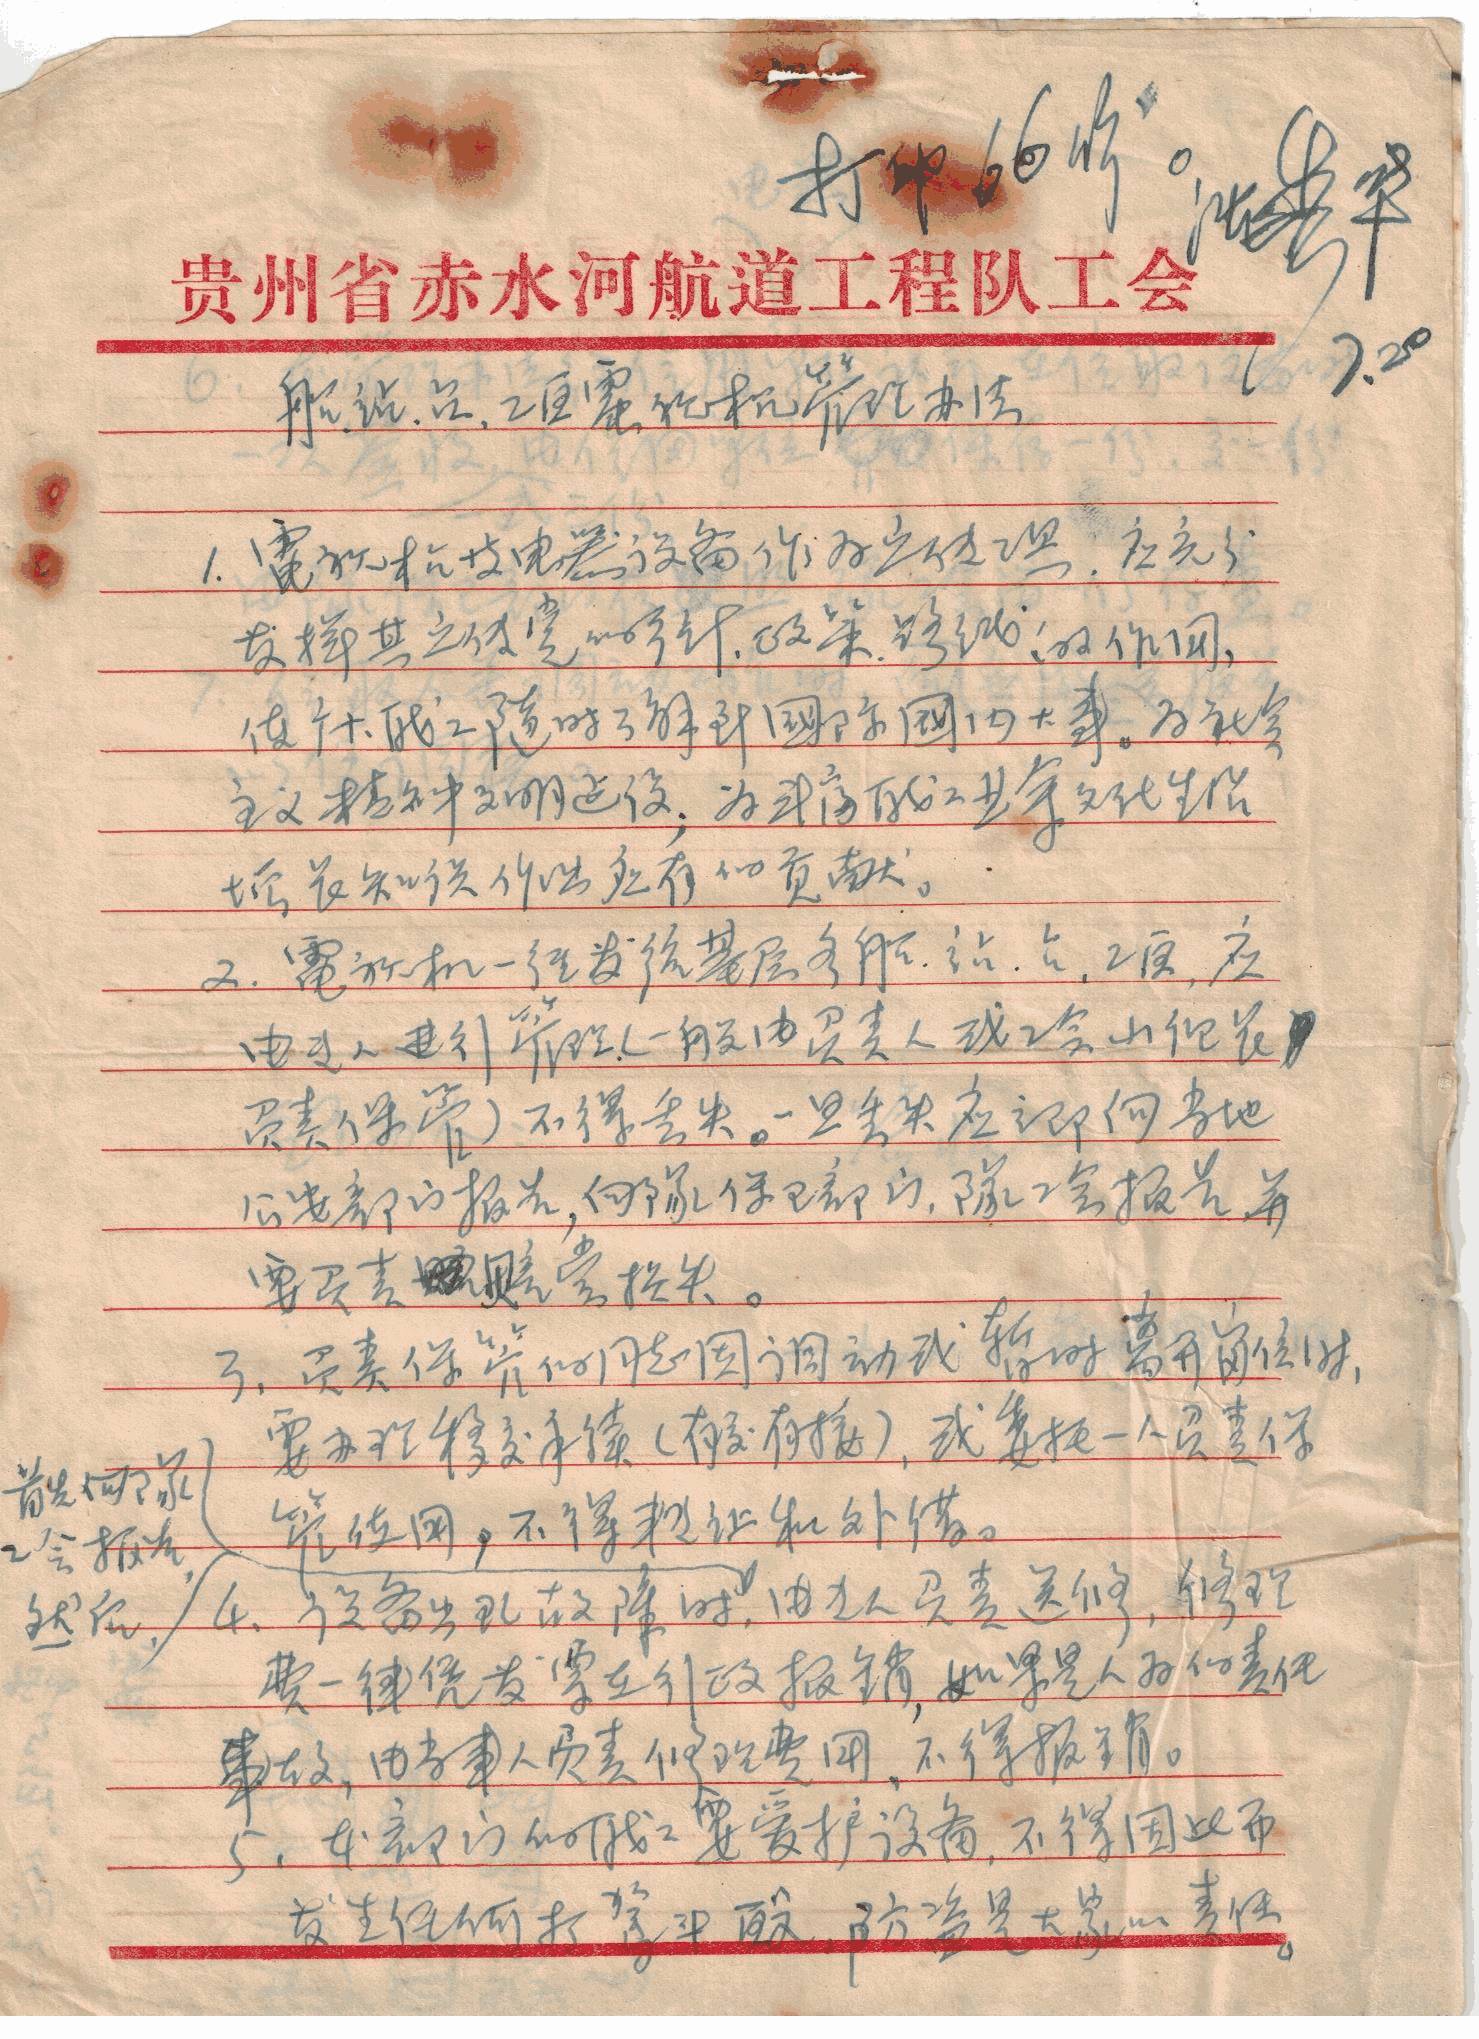 打印66份。
7.20
贵州省赤水河航道工程队工会
船.站.点.工区電视机管理办法
1. 電视机及电器设备作为宣传工具.应充分
发挥其宣传党的方针.政策.路线的作用,
使广大职工随时了解到國际國内大事。为社会
主义精神文明建设,为丰富职工业余文化生活
增长知识作出应有的贡献。
2. 電视机一经发给基层各船.站.点.工区,应
由专人进行管理(一般由负责人或工会小组长
负责保管)不得丢失。一旦丢失应立即向当地
公安部门报告,向队保卫部门,隊工会报告,并
要负责赔赏损失。
3. 负责保管的同志因调动或暂时离开岗位时,
要办理移交手续(有交有接),或委托一人负责保
管使用,不得擅让和外借。
首先向隊
工会报告,
然后,
4. 设备出现故障时,由专人负责送修,修理
费一律凭发票在行政报销,如果是人为的责任
事故,由当事人负责修理费用,不得报销。
5. 本部门的职工要爱护设备,不得因此而
发生任何打架斗殴,防盗是大家的责任。